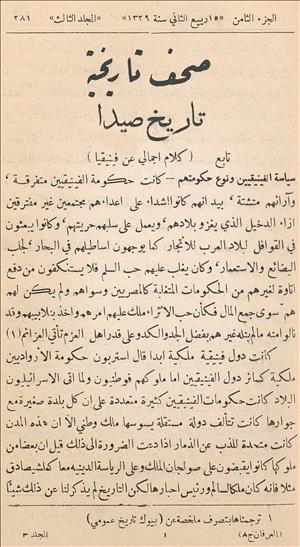 الجزء الثامن «١٥ ربيع الثاني سنة ١٣٢٩» «المجلد الثالث» ٢٨١
صحف تاريخية
تاريخ صيدا
تابع ( كلام اجمالي عن فينيقيا )
سياسة الفينيقيين ونوع حكومتهم — كانت حكومة الفينيقيين متفرقة ،
وآرائهم متشتتة ، بيد انهم كانوا اشداء على اعداءهم مجتمعين غير مفترقين
ازاء الدخيل الذي يغزو بلادهم ، ويعمل على سلبهم حريتهم ، وكانوا يبعثون
في القوافل لبلاد العرب للاتجار كما يوجهون اساطيلهم في البحار لجلب
البضائع والاستعمار ، وكان يغلب عليهم حب السلم فلا يستنكفون من دفع
اتاوة لغيرهم من الحكومات المتغلبة كالمصريين وسواهم ولم يكن لهم
هم سوى جمع المال فكأن حب الاثراء ملك عليهم امرهم واخذ بتلابيبهم وقد
نالوا منه مالم ينله غيرهم بفضل الجد والكد وعلى قدر اهل العزم تأتي العزائم (١)
كانت دول فينيقية ملكية ابدا قال استربون حكومة الأرواديين
ملكية كسائر دول الفينيقيين اما ملوكهم فوطنيون ولما اتى الاسرائيليون
البلاد كانت حكومات الفينيقيين كثيرة متعددة على ان كل بلدة صغيرة مع
جوارها كانت تتألف دولة مستقلة يسوسها ملك وطني الا ان هذه المدن
كانت متحدة للذب عن الذمار اذا دعت الضرورة الى ذلك قيل ان بعضا من
ملوكها كانوا يقبضون على صولجان الملك وعلى الرياسة الدينية معا كملشيصادق
مثلا فانه كان ملكا لسالم ورئيس احبارها لكن التاريخ لم يذكر لنا عن ذلك شيئا
١ ترجمناها بتصرف ملخصة عن (بيوك تاريخ عمومي)
(العرفان ج ٨) ١ المجلد ٣